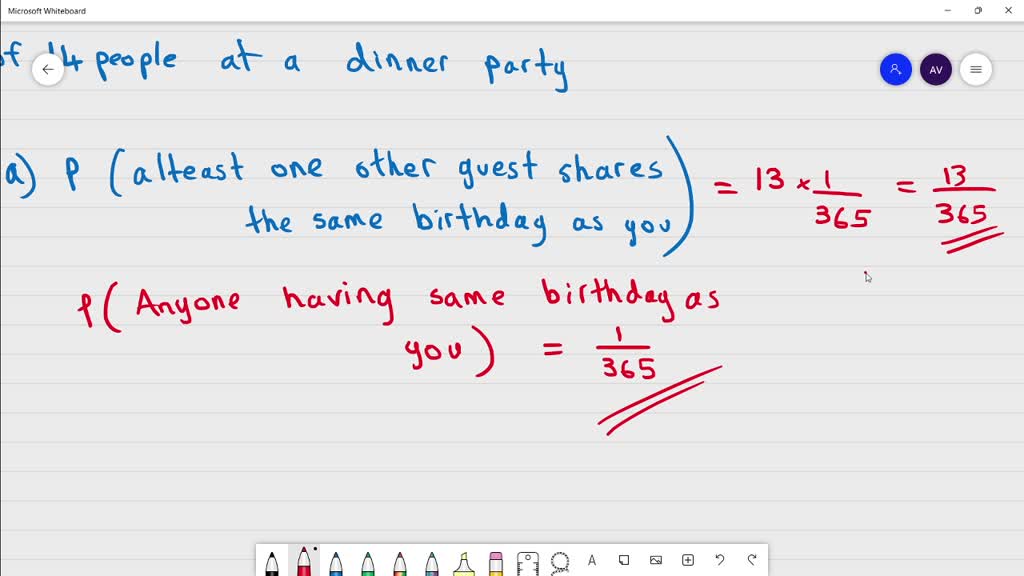 Microsoft Whiteboard
of 14 people at a dinner party
AV
a) P (alteast one other guest shares
the same birthday as you) = 13 × 1/365 = 13/365
P( Anyone having same birthday as
you) = 1/365
A